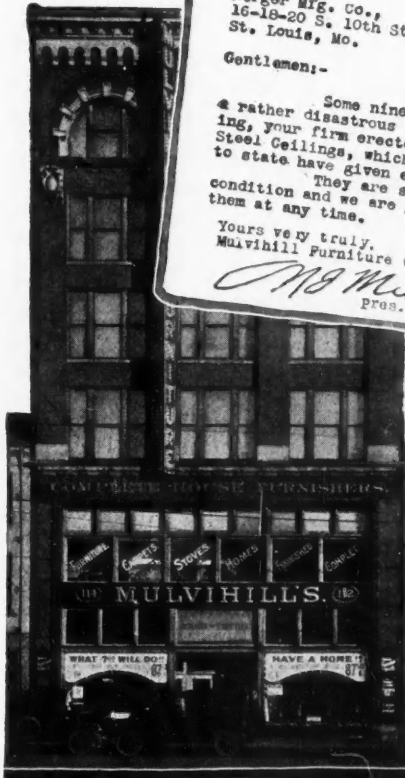 Mfg. Co.,
16-18-20 S. 10th St
St. Louis, Mo.
Gentlemen:-
Some nine
a rather disastrous
ing, your firm erecte
Steel Ceilings, which
to state have given e
They are s
condition and we are
them at any time.
Yours very truly,
Mulvihill Furniture
Pres.
COMPLETE HOUSE FURNISHERS.
FURNITURE CARPETS STOVES HOMES FURNISHED COMPLET
114 MULVIHILL'S. 112
WHAT 7¢ WILL DO!! HAVE A HOME!!